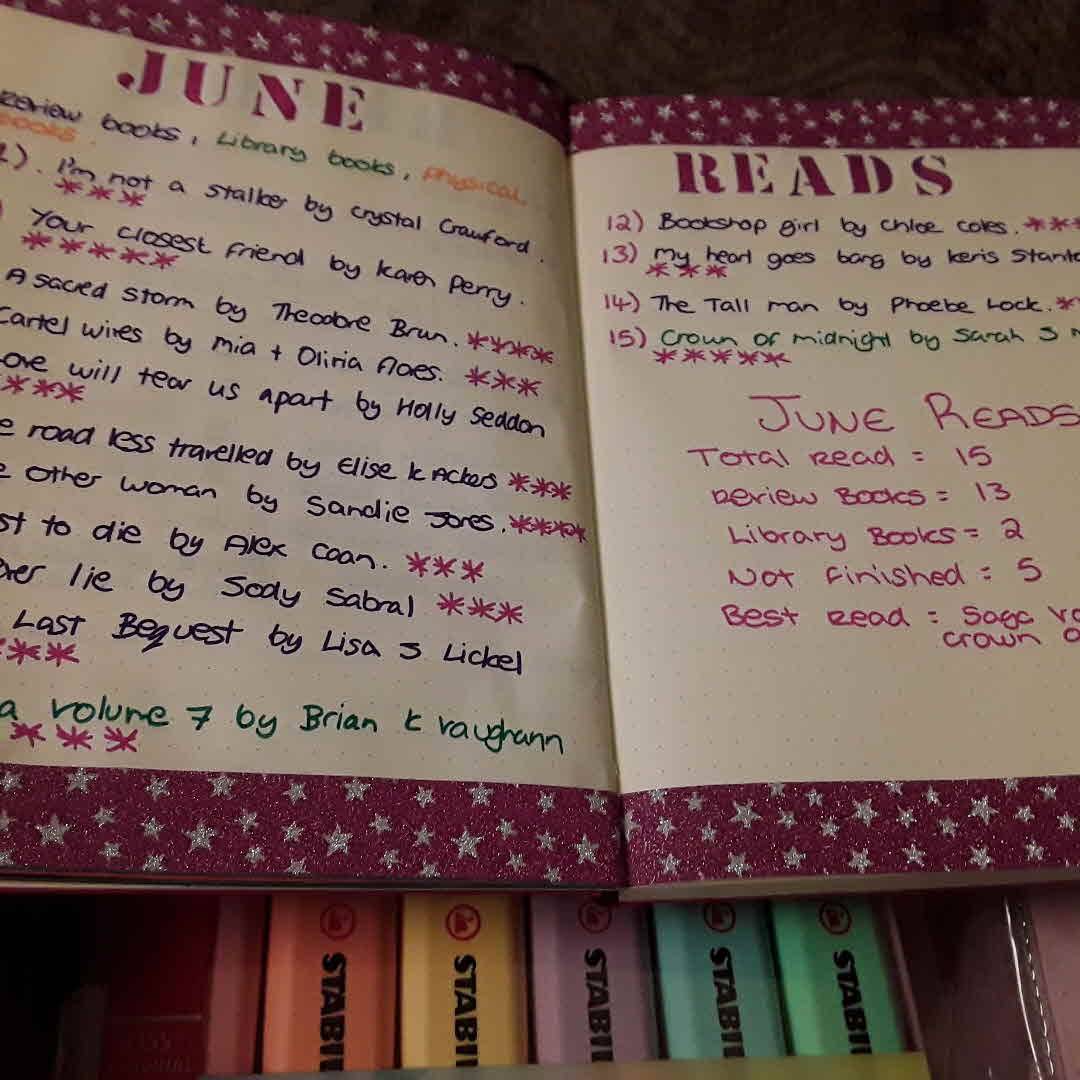 JUNE
Review books, Library books, physical
books.
1). I'm not a stalker by crystal Crawford.
***
Your closest friend by karen Perry.
*****
A sacred storm by Theodore Brun. ****
Cartel wives by mia + Olivia floes. ***
Love will tear us apart by Holly Seddon
***
road less travelled by Elise k Ackers ***
Other woman by Sandie Jones. ****
to die by Alex Coan. ***
lie by Sody Sabral ***
Last Bequest by Lisa J Lickel
***
volume 7 by Brian k vaughann
***
READS
12) Bookshop girl by Chloe coles. ***
13) my heart goes bang by keris
***
14) The Tall man by Phoebe Lock. *
15) Crown of midnight by Sarah J
*****
JUNE READS
Total Read = 15
Review Books = 13
Library Books = 2
Not finished = 5
Best Read = Saga
crown
STABIL
STABIL
STABI
STABIL
STABIL